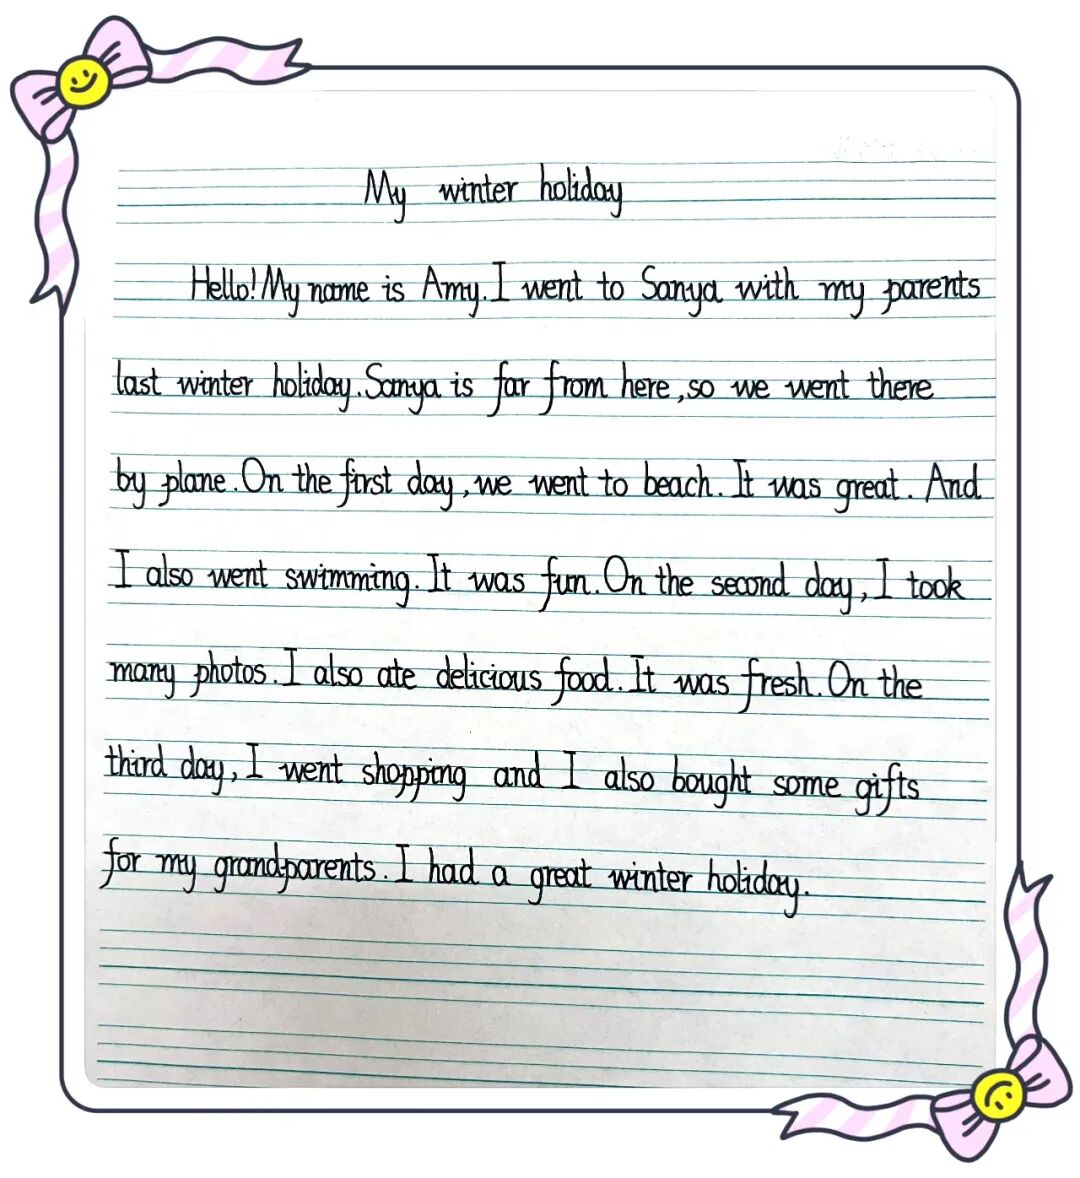 My winter holiday
Hello! My name is Amy. I went to Sanya with my parents
last winter holiday. Sanya is far from here, so we went there
by plane. On the first day, we went to beach. It was great. And
I also went swimming. It was fun. On the second day, I took
many photos. I also ate delicious food. It was fresh. On the
third day, I went shopping and I also bought some gifts
for my grandparents. I had a great winter holiday.